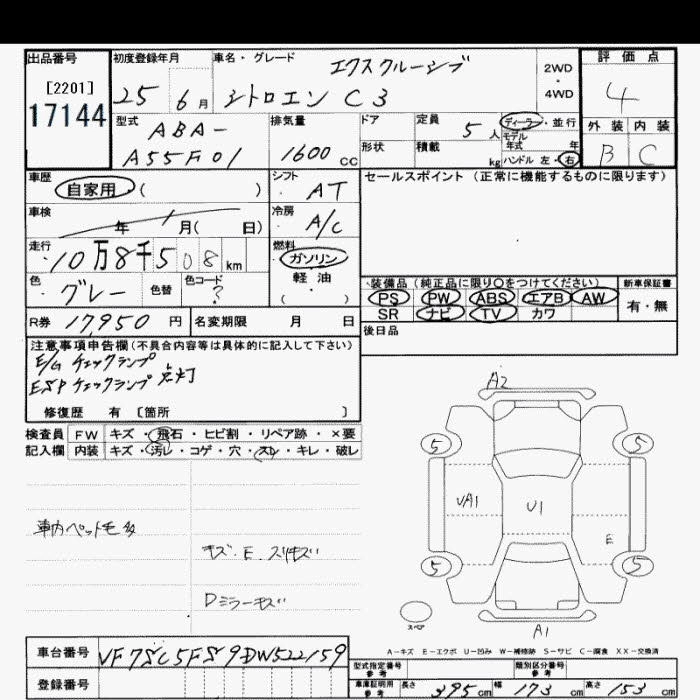 出品番号
[2201]
17144
初度登録年月
25 6月
車名・グレード
エクスクルーシブ
シトロエン C3
2WD
・
4WD
評価点
4
外装 内装
B C
型式
ABA-
A55F01
排気量
1600 cc
ドア
形状
定員
5人
積載
kg
ディーラー・並行
モデル
年式 年
ハンドル 左・右
車歴
自家用 ( )
シフト
AT
車検
年 月( 日)
冷房
A/C
走行
10万8千508km
燃料
ガソリン
軽油
( )
色
グレー
色替
色コード
?
R券 17,950 円
名変期限 月 日
セールスポイント (正常に機能するものに限ります)
装備品(純正品に限り○をつけてください)
PS PW ABS エアB AW
SR ナビ TV カワ
新車保証書
有・無
後日品
注意事項申告欄(不具合内容等は具体的に記入して下さい)
E/G チェックランプ
ESP チェックランプ 点灯
修復歴 有 〔箇所 〕
検査員
記入欄
FW キズ・飛石・ヒビ割・リペア跡・×要
内装 キズ・汚レ・コゲ・穴・スレ・キレ・破レ
車内ペット毛多
キズ・E・スリキズ
Dミラーキズ
A2
5
5
UA1
U1
E
5
5
スペア
A1
A-キズ E-エクボ U-凹み W-補修跡 S-サビ C-腐食 XX-交換済
車台番号
VF7SC5FS9DW522159
登録番号
型式指定番号
参考
類別区分番号
参考
車庫証明用
参考
長さ 395cm 幅 173cm 高さ 153cm